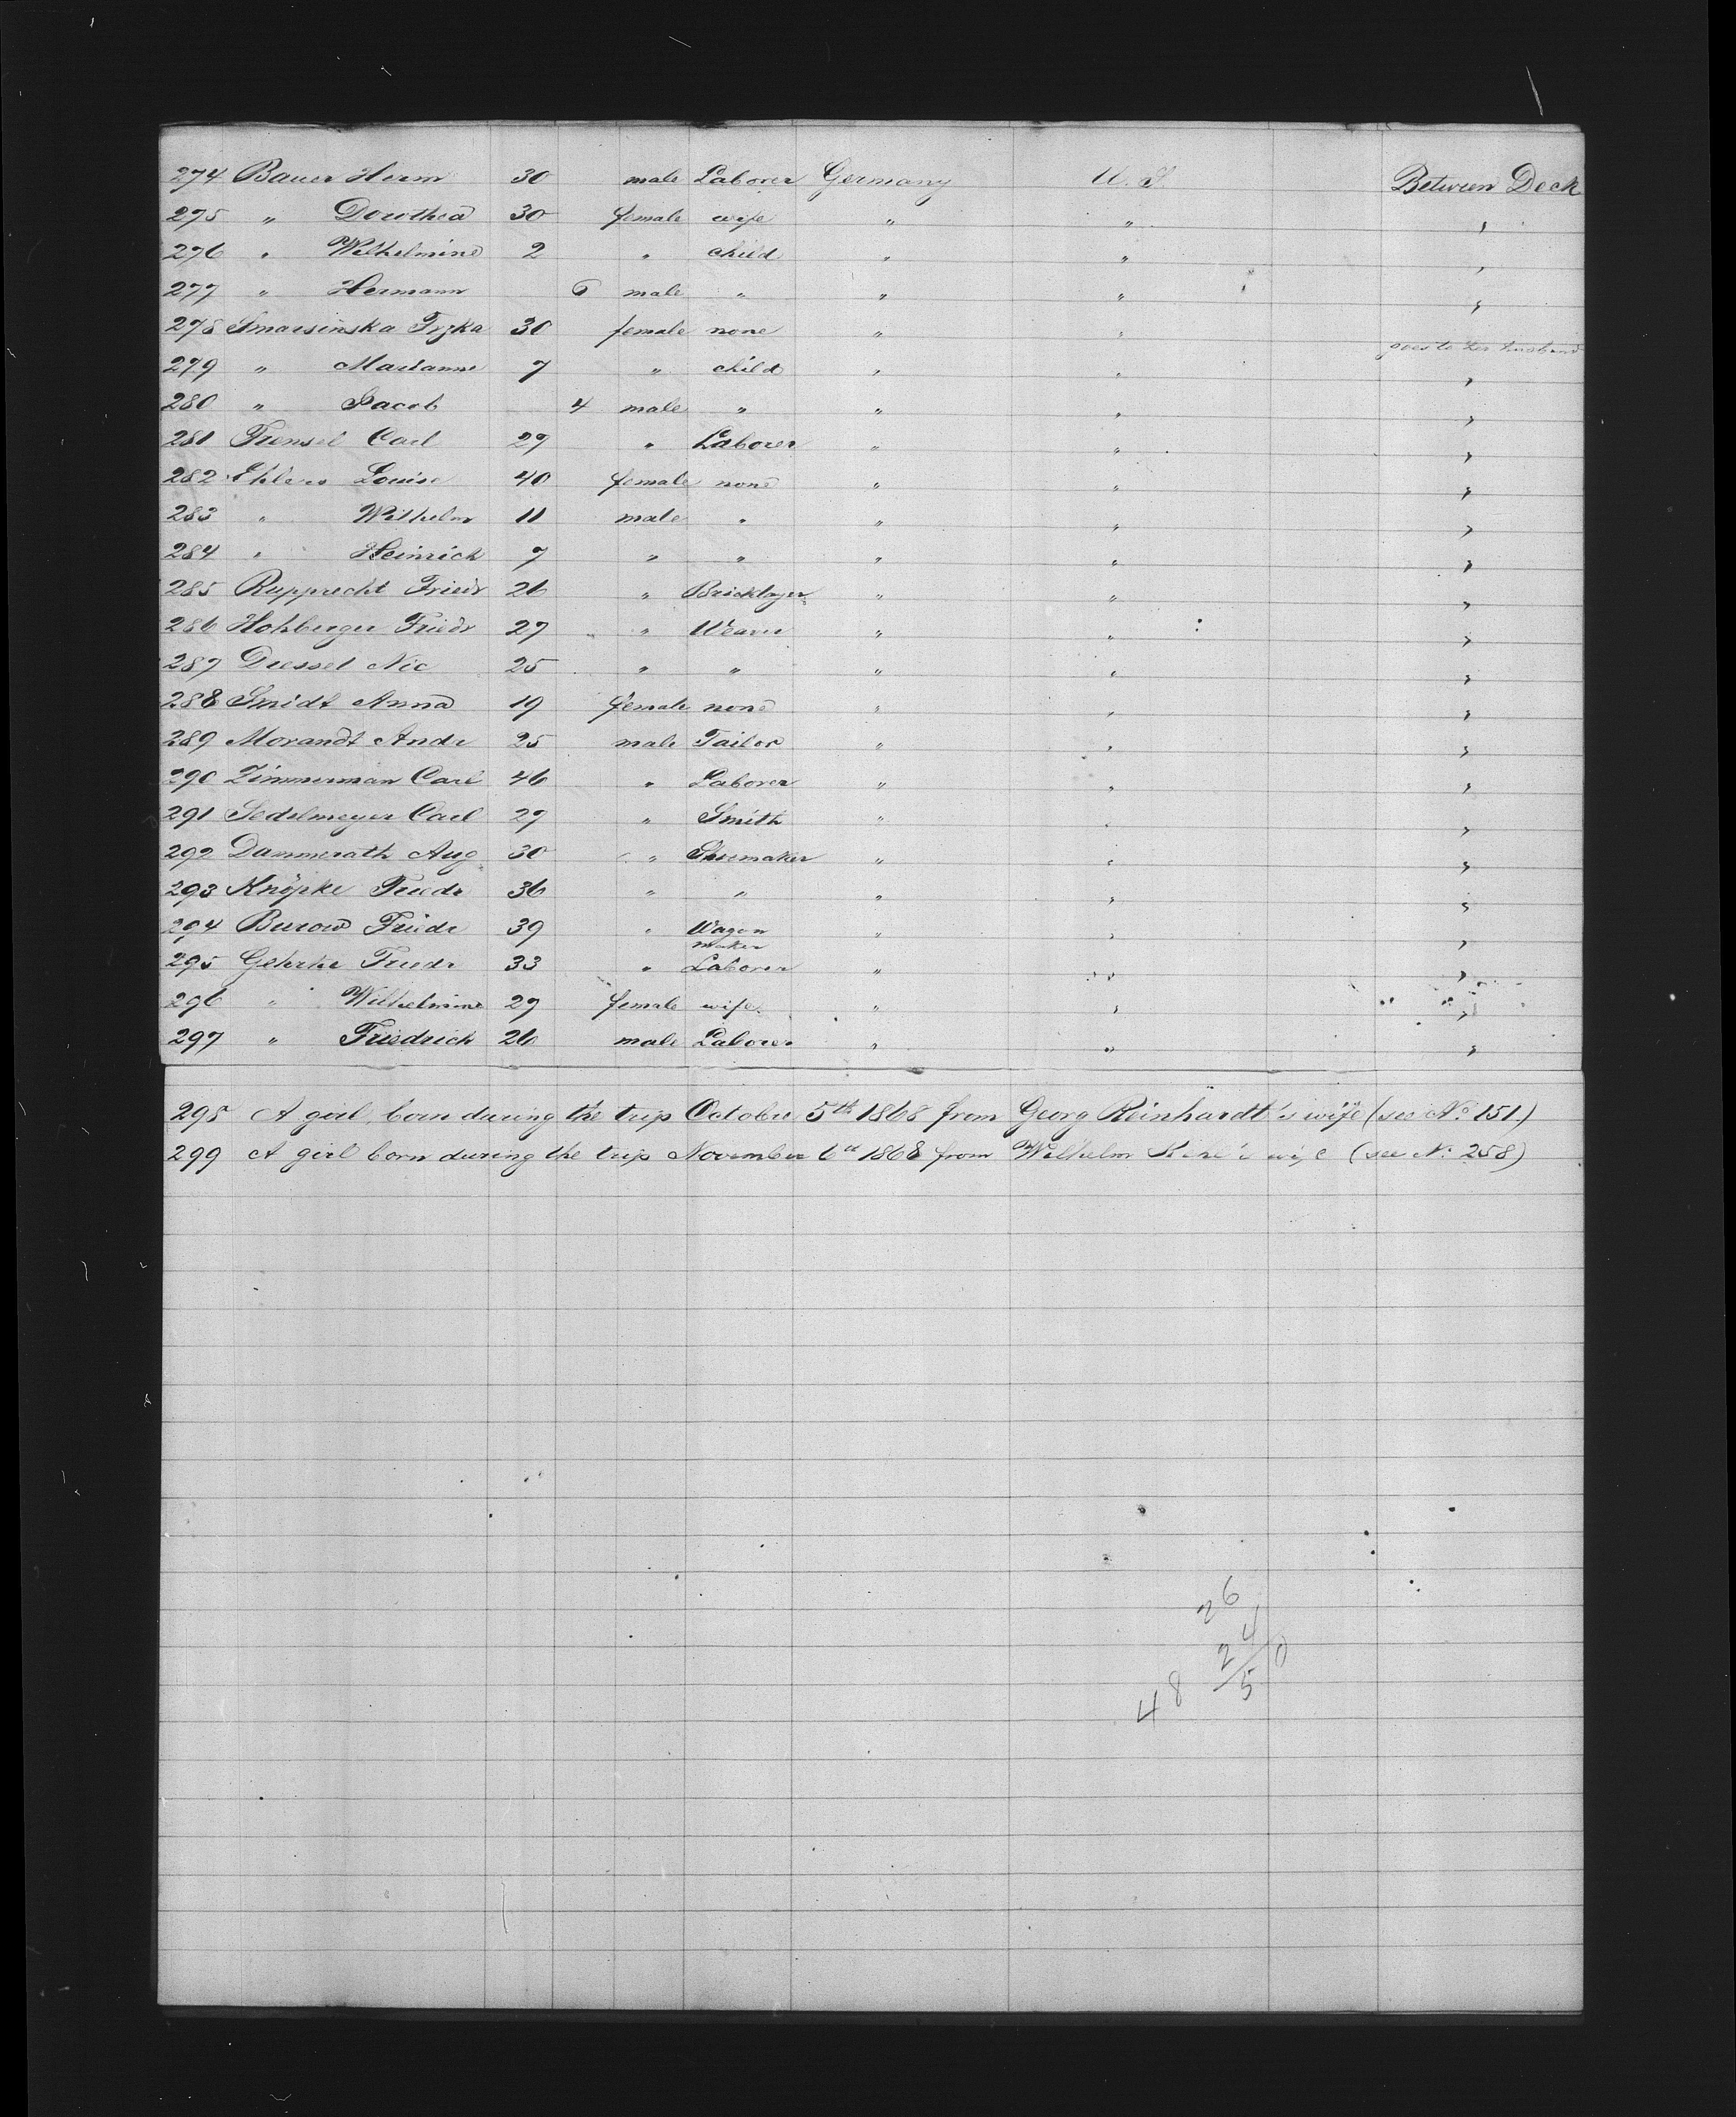 274 Bauer Herm 30 male Laborer Germany U. S. Between Deck
275 " Dorothea 30 female wife " " "
276 " Wilhelmine 2 " child " " "
277 " Hermann 6 male " " " "
278 Smarsinska 30 female none " " goes to her husband
279 " Marianne 7 " child " " "
280 " Jacob 4 male " " " "
281 Carl 29 " Laborer " " "
282 Ehlers Louise 40 female none " " "
283 " Wilhelm 11 male " " " "
284 " Heinrich 7 " " " " "
285 Rupprecht Friedr 26 " Bricklayer " " "
286 Holzberger Friedr 27 " Weaver " " "
287 Dressel Nic 25 " " " " "
288 Smidt Anna 19 female none " " "
289 Morandt Andr 25 male Tailor " " "
290 Zimmerman Carl 46 " Laborer " " "
291 Sedelmeyer Carl 29 " Smith " " "
292 Dammerath Aug 30 " Shoemaker " " "
293 Knöpke Friedr 36 " " " " "
294 Burow Friedr 39 " Wagon maker " " "
295 Gehrke Friedr 33 " Laborer " " "
296 " Wilhelmine 29 female wife " " "
297 " Friedrich 26 male Laborer " " "
298 A girl, born during the trip October 5th 1868 from Georg Reinhardt's wife (see No. 151)
299 A girl born during the trip November 6th 1868 from Wilhelm wife (see No. 258)
26
24
50
48